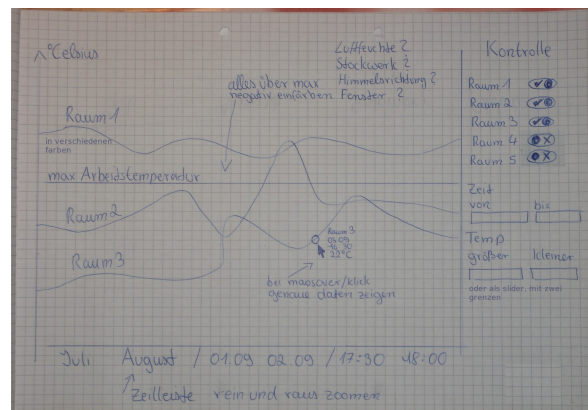 ^°Celsius
Luftfeuchte ?
Stockwerk ?
Himmelsrichtung ?
Fenster ?
alles über max
negativ einfärben
Raum 1
in verschiedenen
farben
max Arbeitstemperatur
Raum 2
Raum 3
Raum 3
03.09
16:30
22°C
bei maosover/klick
genaue daten zeigen
Juli August / 01.09 02.09 / 17:30 18:00
Zeitleiste rein und raus zoomen
Kontrolle
Raum 1
Raum 2
Raum 3
Raum 4 X
Raum 5 X
Zeit
von bis
Temp
größer kleiner
oder als slider, mit zwei
grenzen